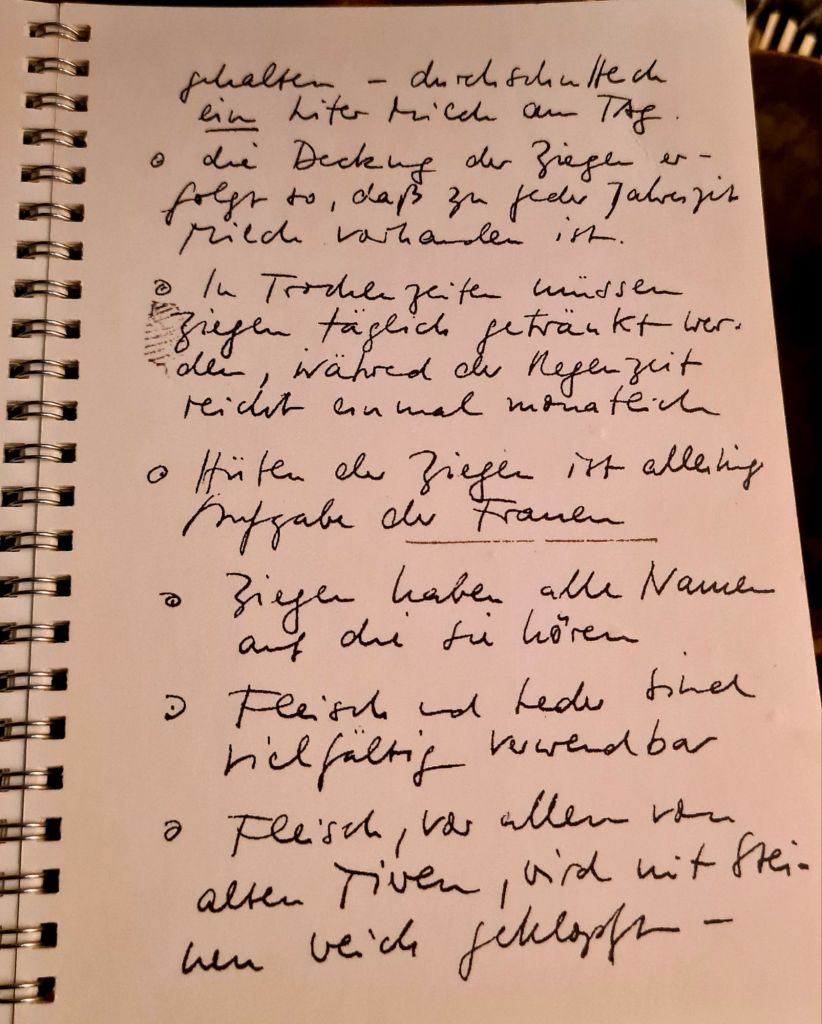 gehalten – durchschnittlich
ein Liter Milch am Tag.
die Deckung der Ziegen er-
folgt so, daß zu jeder Jahreszeit
Milch vorhanden ist.
In Trockenzeiten müssen
Ziegen täglich getränkt wer-
den, während der Regenzeit
reicht einmal monatlich
Hüten der Ziegen ist alleinige
Aufgabe der Frauen
Ziegen haben alle Namen
auf die sie hören
Fleisch und Leder sind
vielfältig verwendbar
Fleisch, vor allem von
alten Tieren, wird mit Stei-
nen weich geklopft –